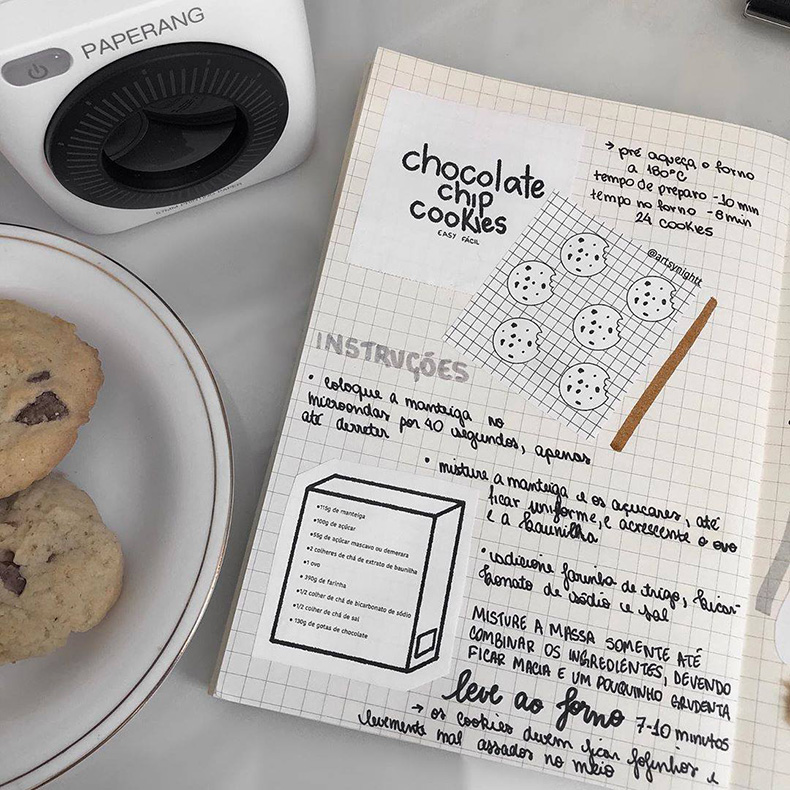 PAPERANG
chocolate
chip
cookies
EASY FÁCIL
→ pré aqueça o forno
a 180°C
tempo de preparo - 10 min
tempo no forno - 8 min
24 cookies
@artsynightt
INSTRUÇÕES
• coloque a manteiga no
microondas por 40 segundos, apenas
até derreter
• misture a manteiga e os açucares, até
ficar uniforme, e acrescente o ovo
e a baunilha
•115g de manteiga
•100g de açúcar
•55g de açúcar mascavo ou demerara
•2 colheres de chá de extrato de baunilha
•1 ovo
• 390g de farinha
•1/2 colher de chá de bicarbonato de sódio
•1/2 colher de chá de sal
• 130g de gotas de chocolate
• adicione farinha de trigo, bicar-
bonato de sódio e sal
MISTURE A MASSA SOMENTE ATÉ
COMBINAR OS INGREDIENTES, DEVENDO
FICAR MACIA E UM POUQUINHO GRUDENTA
leve ao forno 7-10 minutos
→ os cookies devem ficar fofinhos e
levemente mal assados no meio